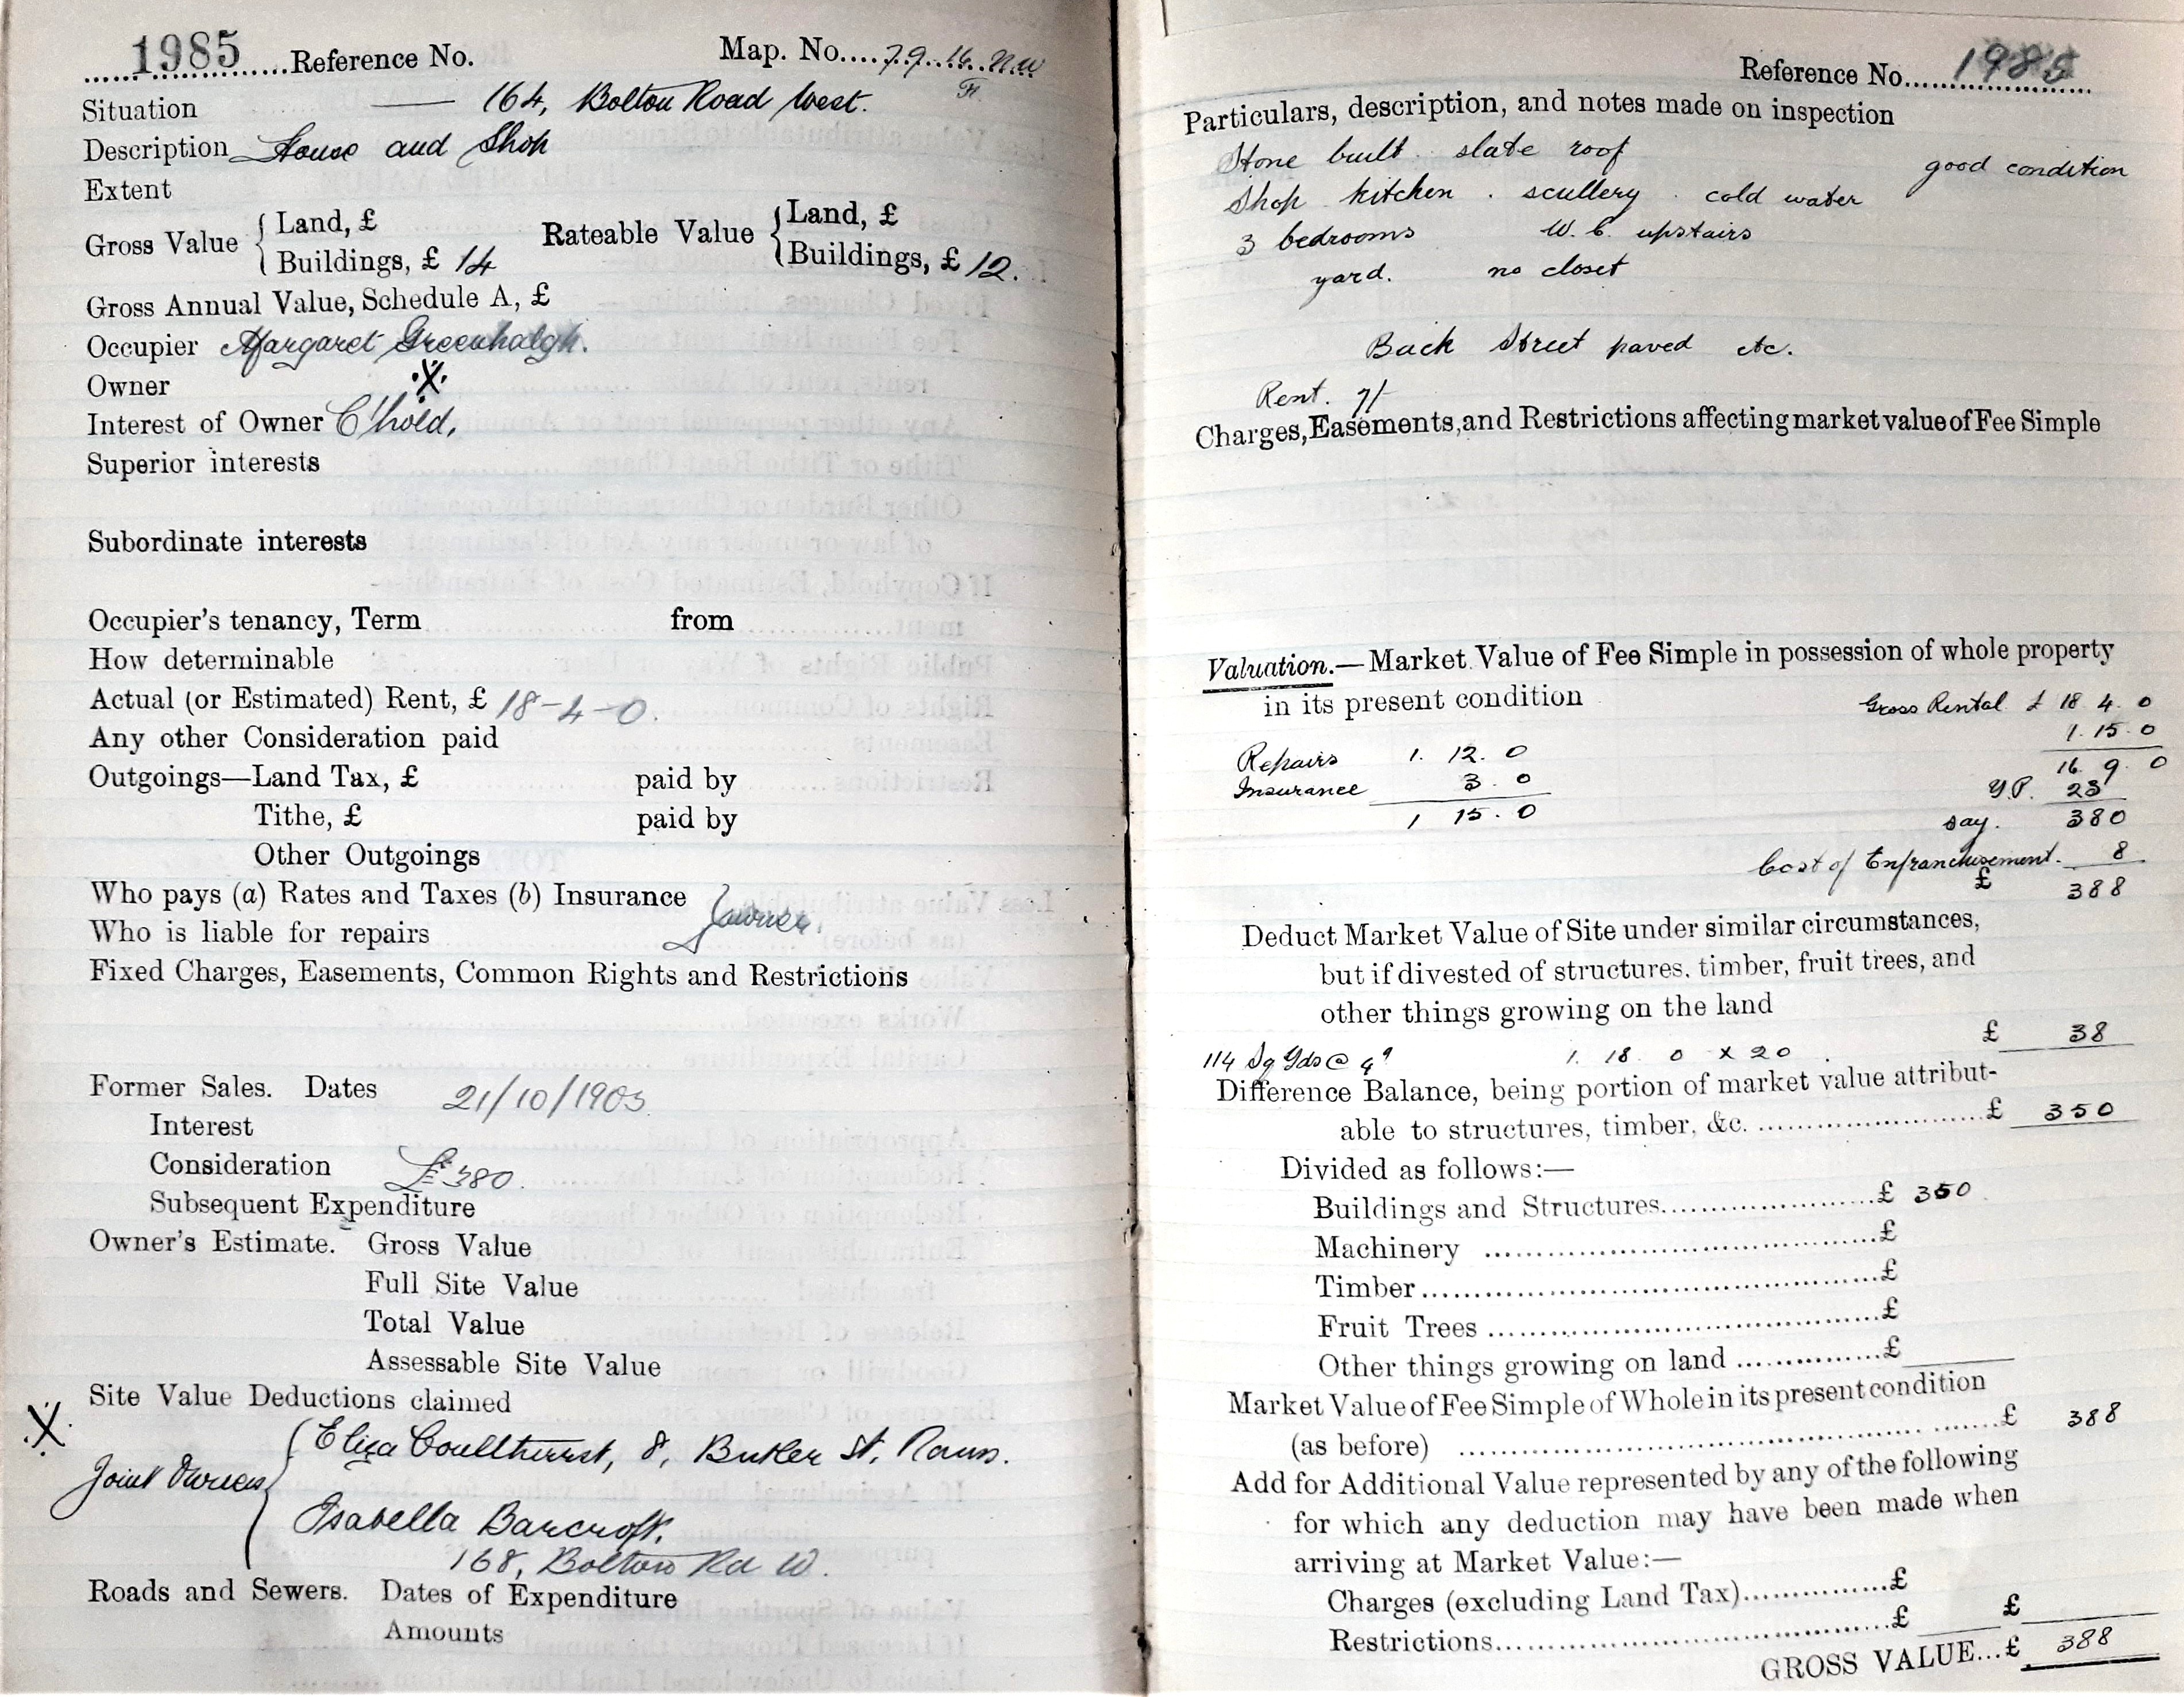 1985 Reference No. Map. No. 79.16 N.W
Situation — 164, Bolton Road West.
Description House and Shop
Extent
Gross Value { Land, £ Rateable Value { Land, £
Buildings, £ 14 Buildings, £ 12.
Gross Annual Value, Schedule A, £
Occupier Margaret Greenhalgh.
Owner X
Interest of Owner C'hold,
Superior interests
Subordinate interests
Occupier's tenancy, Term from
How determinable
Actual (or Estimated) Rent, £ 18-4-0.
Any other Consideration paid
Outgoings—Land Tax, £ paid by
Tithe, £ paid by
Other Outgoings
Who pays (a) Rates and Taxes (b) Insurance
Who is liable for repairs } owner.
Fixed Charges, Easements, Common Rights and Restrictions
Former Sales. Dates 21/10/1903
Interest
Consideration £380.
Subsequent Expenditure
Owner's Estimate. Gross Value
Full Site Value
Total Value
Assessable Site Value
Site Value Deductions claimed
X
Joint Owners { Eliza Coulthurst, 8, Bunker St, Rams.
Isabella Barcroft,
168, Bolton Rd W.
Roads and Sewers. Dates of Expenditure
Amounts
Reference No. 1985
Particulars, description, and notes made on inspection
Stone built slate roof good condition
Shop kitchen . scullery . cold water
3 bedrooms W.C. upstairs
yard. no closet
Back Street paved etc.
Rent. 7/-
Charges, Easements, and Restrictions affecting market value of Fee Simple
Valuation.—Market Value of Fee Simple in possession of whole property
in its present condition
Gross Rental £ 18 4. 0
Repairs 1. 12. 0 1. 15. 0
Insurance 3. 0 16. 9. 0
Y.P. 23
1 15. 0 say. 380
Cost of Enfranchisement. 8
£ 388
Deduct Market Value of Site under similar circumstances,
but if divested of structures, timber, fruit trees, and
other things growing on the land
£ 38
114 Sq Yds @ 4d 1. 18. 0 x 20
Difference Balance, being portion of market value attribut-
able to structures, timber, &c. £ 350
Divided as follows:—
Buildings and Structures £ 350
Machinery £
Timber £
Fruit Trees £
Other things growing on land £
Market Value of Fee Simple of Whole in its present condition
(as before) £ 388
Add for Additional Value represented by any of the following
for which any deduction may have been made when
arriving at Market Value:—
Charges (excluding Land Tax) £
Restrictions £ £
GROSS VALUE... £ 388